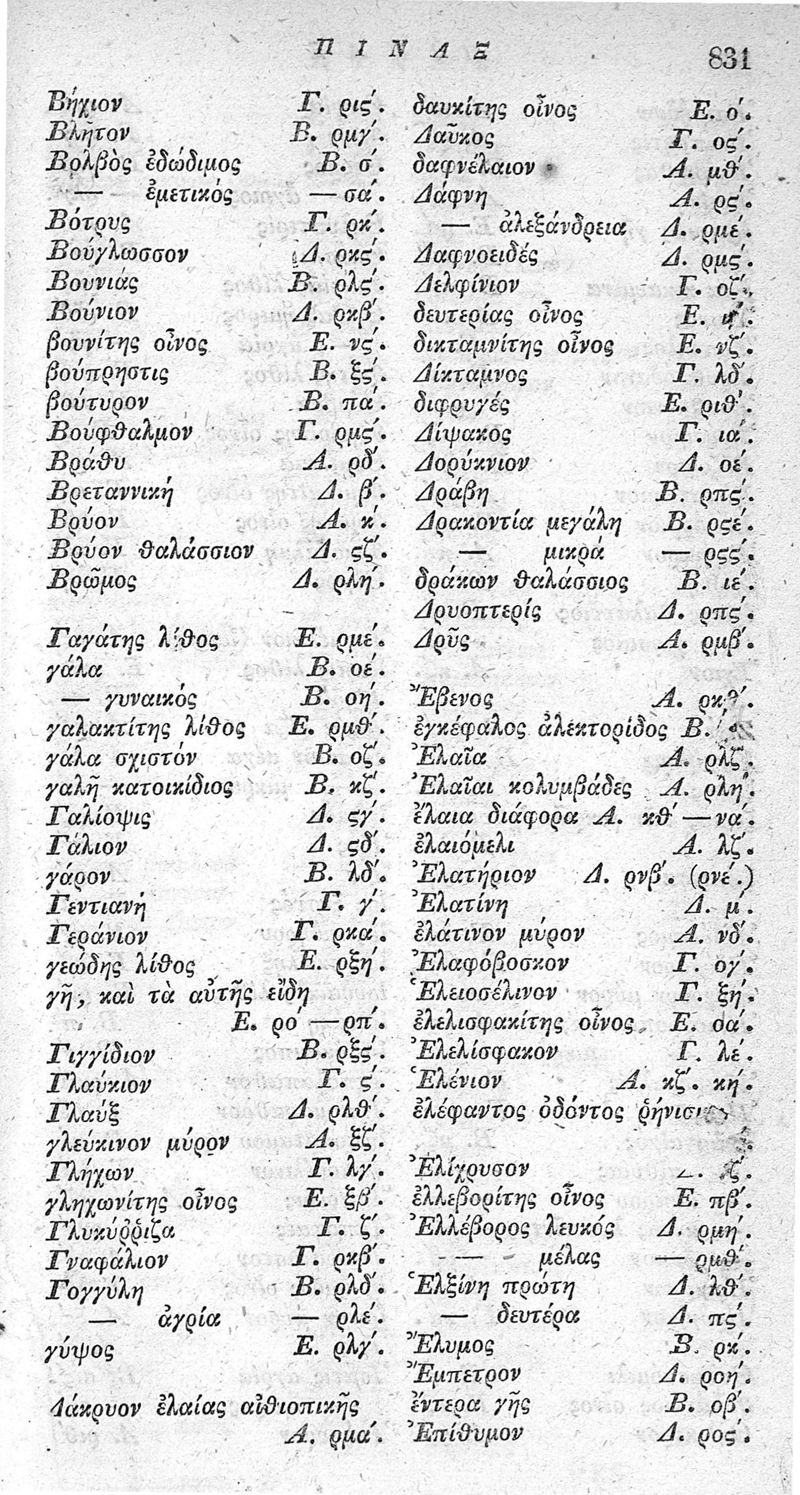 ΠΙΝΑΞ 831
Βήχιον Γ. ρις´.
Βλῆτον Β. ρμγ´.
Βολβὸς ἐδώδιμος Β. σ´.
— ἐμετικός — σα´.
Βότρυς Γ. ρκ´.
Βούγλωσσον Δ. ρκς´.
Βουνιάς Β. ρλς´.
Βούνιον Δ. ρκβ´.
βουνίτης οἶνος Ε. νς´.
βούπρηστις Β. ξς´.
βούτυρον Β. πα´.
Βούφθαλμον Γ. ρμς´.
Βράθυ Α. ρδ´.
Βρεταννική Δ. β´.
Βρύον Α. κ´.
Βρύον θαλάσσιον Δ. ϟζ´.
Βρῶμος Δ. ρλη´.
Γαγάτης λίθος Ε. ρμέ.
γάλα Β. οέ.
— γυναικός Β. οή.
γαλακτίτης λίθος Ε. ρμθ´.
γάλα σχιστόν Β. οζ´.
γαλῆ κατοικίδιος Β. κζ´.
Γαλίοψις Δ. ϟγ´.
Γάλιον Δ. ϟδ´.
γάρον Β. λδ´.
Γεντιανή Γ. γ´.
Γεράνιον Γ. ρκά.
γεώδης λίθος Ε. ρξή.
γῆ, καὶ τὰ αὐτῆς εἴδη
Ε. ρό — ρπ´.
Γιγγίδιον Β. ρξς´.
Γλαύκιον Γ. ϟ´.
Γλαύξ Δ. ρλθ´.
γλεύκινον μύρον Α. ξζ´.
Γλήχων Γ. λγ´.
γληχωνίτης οἶνος Ε. ξβ´.
Γλυκύῤῥιζα Γ. ζ´.
Γναφάλιον Γ. ρκβ´.
Γογγύλη Β. ρλδ´.
— ἀγρία — ρλέ.
γύψος Ε. ρλγ´.
Δάκρυον ἐλαίας αἰθιοπικῆς
Α. ρμά.
δαυκίτης οἶνος Ε. ό.
Δαῦκος Γ. ος´.
δαφνέλαιον Α. μθ´.
Δάφνη Α. ρς´.
— ἀλεξάνδρεια Δ. ρμέ.
Δαφνοειδές Δ. ρμς´.
Δελφίνιον Γ. οζ´.
δευτερίας οἶνος Ε.
δικταμνίτης οἶνος Ε. νζ´.
Δίκταμνος Γ. λδ´.
διφρυγές Ε. ριθ´.
Δίψακος Γ. ιά.
Δορύκνιον Δ. οέ.
Δράβη Β. ρπς´.
Δρακοντία μεγάλη Β. ρϟέ.
— μικρά — ρϟς´.
δράκων θαλάσσιος Β. ιέ.
Δρυοπτερίς Δ. ρπς´.
Δρῦς Α. ρμβ´.
Ἔβενος Α. ρκθ´.
ἐγκέφαλος ἀλεκτορίδος Β.
Ἐλαῖα Α. ρλζ´.
Ἐλαῖαι κολυμβάδες Α. ρλή.
ἔλαια διάφορα Α. κθ´ — νά.
ἐλαιόμελι Α. λζ´.
Ἐλατήριον Δ. ρνβ´. (ρνέ.)
Ἐλατίνη Δ. μ´.
ἐλάτινον μύρον Α. νδ´.
Ἐλαφόβοσκον Γ. ογ´.
Ἑλειοσέλινον Γ. ξή.
ἐλελισφακίτης οἶνος Ε. οά.
Ἐλελίσφακον Γ. λέ.
Ἑλένιον Α. κζ´. κή.
ἐλέφαντος ὀδόντος ῥήνισις
Ἑλίχρυσον ζ´.
ἐλλεβορίτης οἶνος Ε. πβ´.
Ἑλλέβορος λευκός Δ. ρμή.
— μέλας — ρμθ´.
Ἑλξίνη πρώτη Δ. λθ´.
— δευτέρα Δ. πς´.
Ἔλυμος Β. ρκ´.
Ἔμπετρον Δ. ροή.
ἔντερα γῆς Β. οβ´.
Ἐπίθυμον Δ. ρος´.